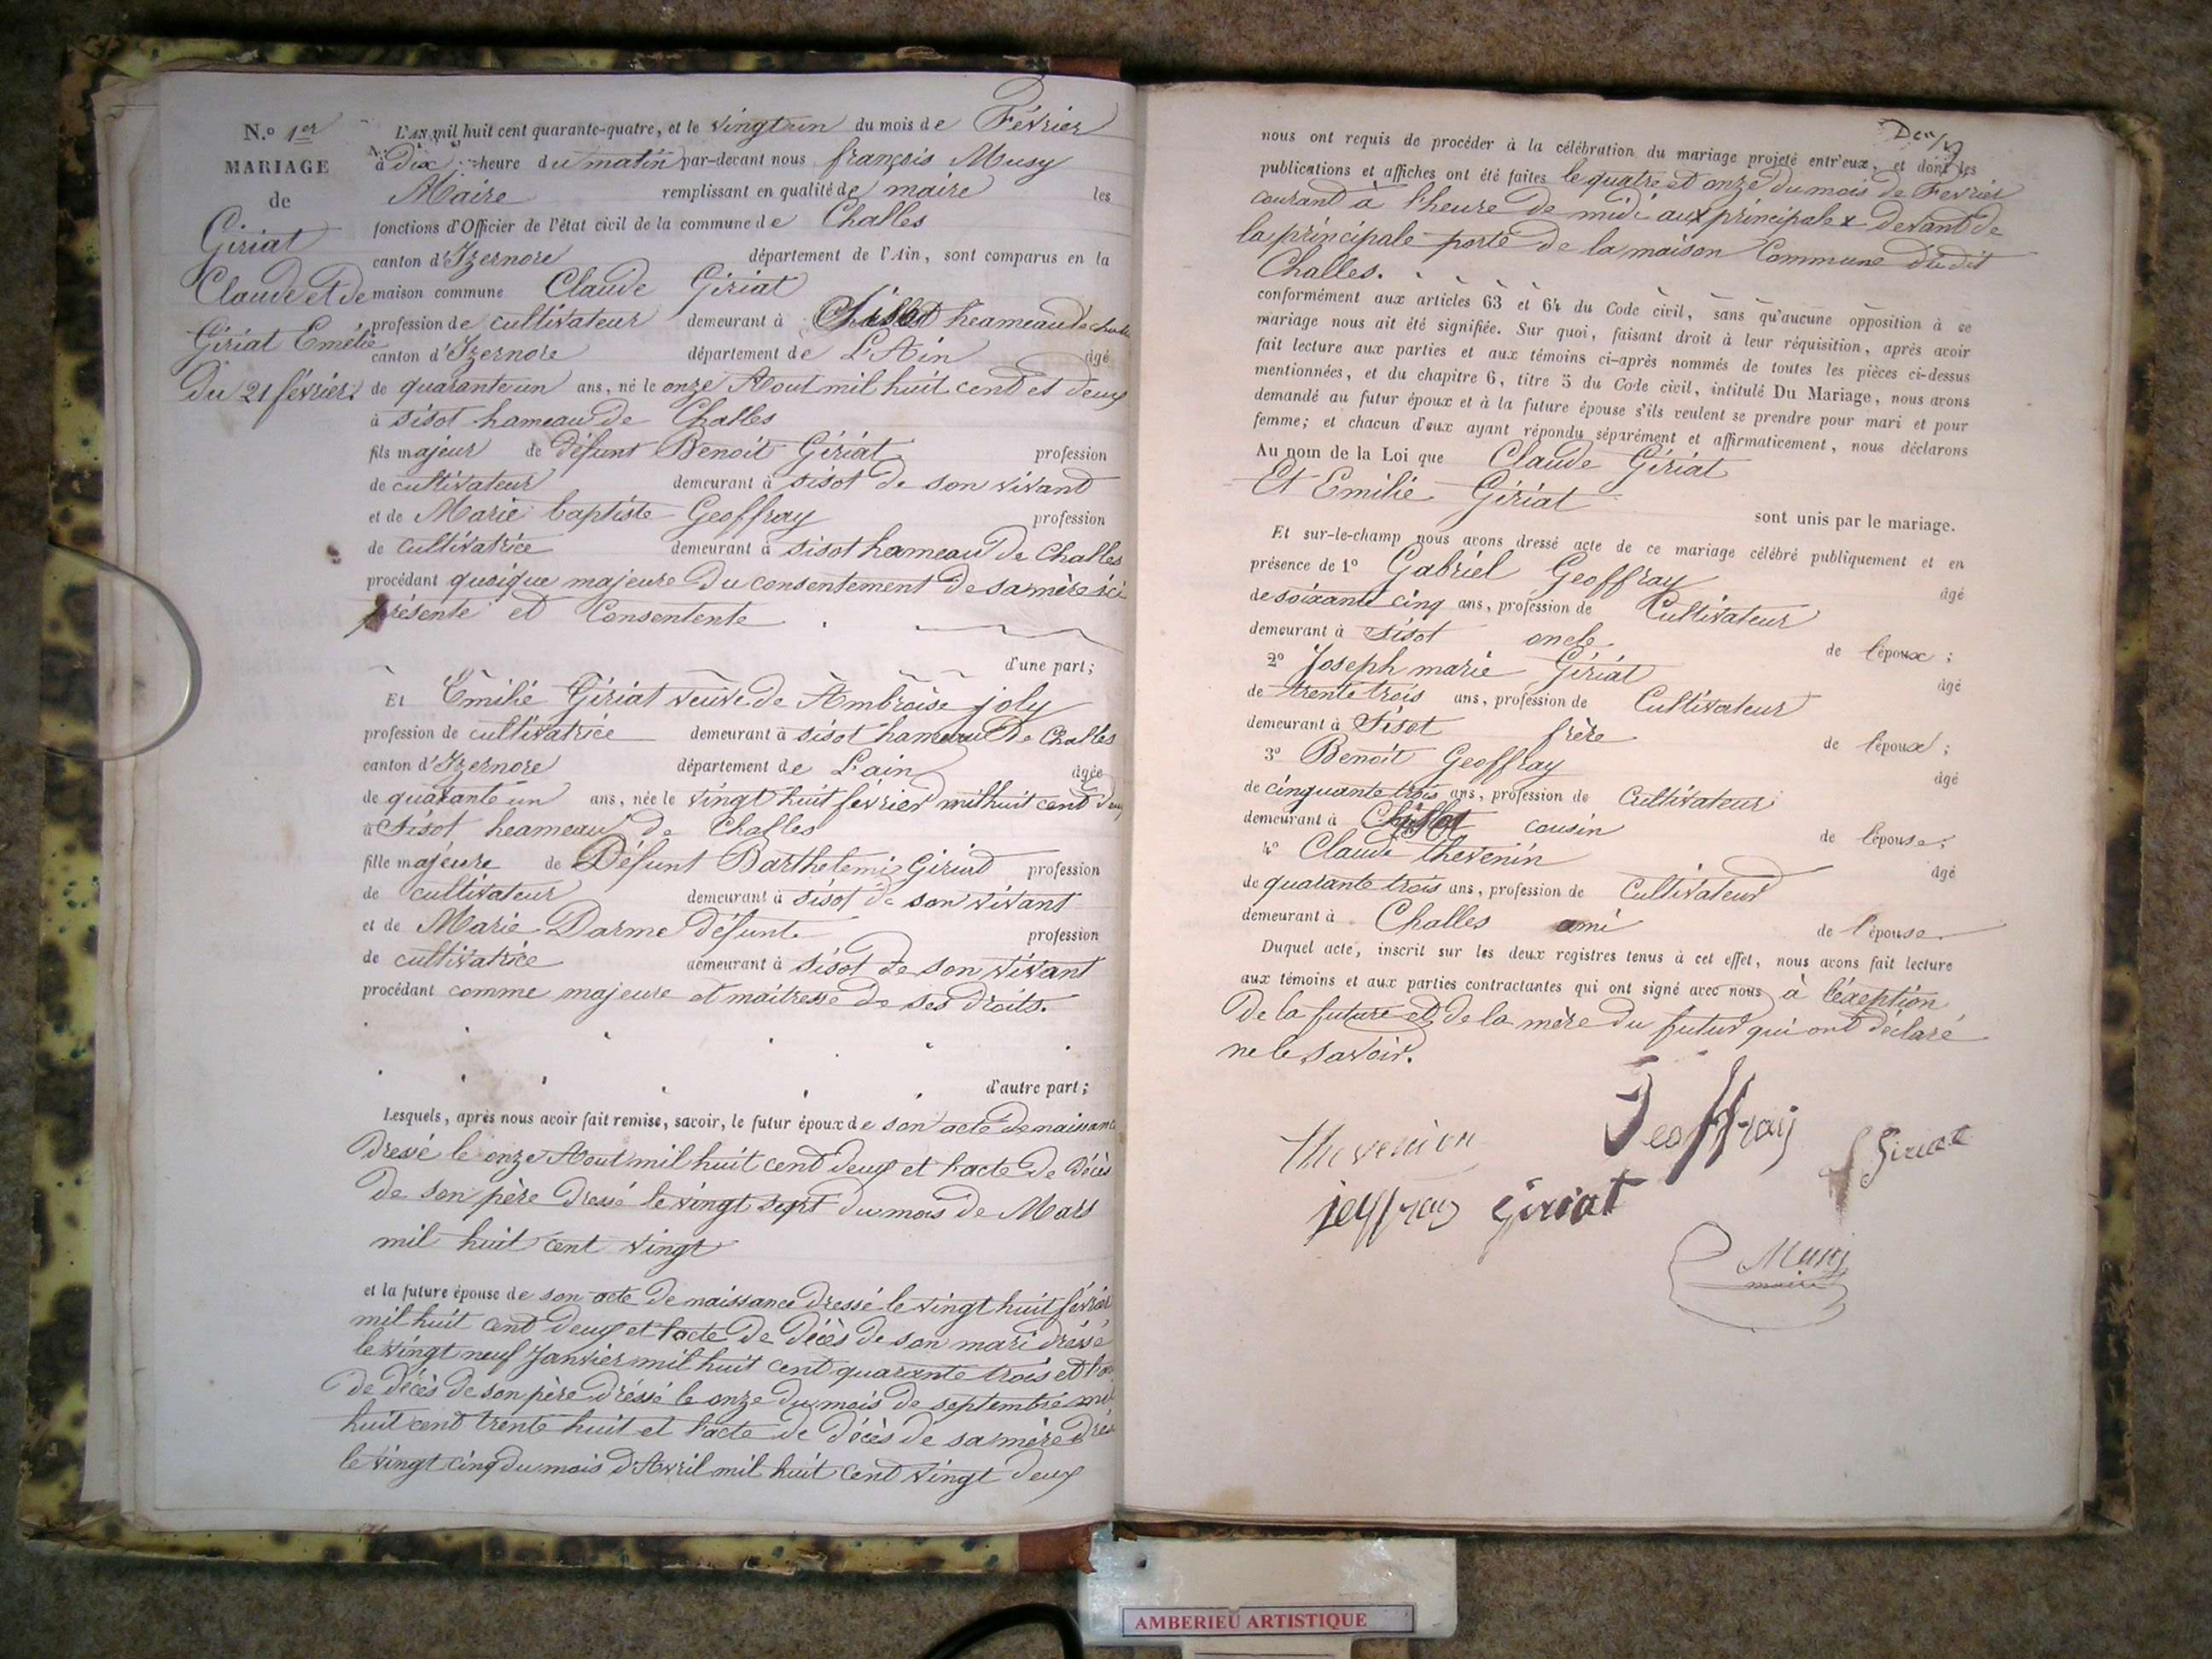 N.º 1er
MARIAGE
de
Giriat
Claude et de
Giriat Emélie
Du 21 février.
L'AN mil huit cent quarante-quatre, et le vingt un du mois de Février
à Dix heure du matin par-devant nous françois Musy
Maire remplissant en qualité de maire les
fonctions d'Officier de l'état civil de la commune de Challes
canton d'Izernore département de l'Ain, sont comparus en la
maison commune Claude Giriat
profession de cultivateur demeurant à Sisot heameau de
canton d'Izernore département de L'Ain âgé
de quarante un ans, né le onze Aout mil huit cent et deux
à Sisot hameau de Challes
fils majeur de défunt Benoit Giriat profession
de cultivateur demeurant à sisot de son vivant
et de Marie baptiste Geoffray profession
de cultivatrice demeurant à sisot hameau de Challes
procédant quoique majeure du consentement de sa mère ici
présente et Consentente
d'une part;
Et Emilie Giriat veuve de Ambroise joly
profession de cultivatrice demeurant à sisot hameau de Challes
canton d'Izernore département de L'ain âgée
de quarante un ans, née le vingt huit février mil huit cent deux
à Sisot heameau de Challes
fille majeure de Défunt Barthelemi Giriat profession
de cultivateur demeurant à sisot de son vivant
et de Marie Darme défunte profession
de cultivatrice demeurant à sisot de son vivant
procédant comme majeure et maitresse de ses droits.
d'autre part;
Lesquels, après nous avoir fait remise, savoir, le futur époux de son acte de naissance
Dressé le onze Aout mil huit cent deux et l'acte de Décès
de son père Dressé le vingt sept du mois de Mars
mil huit cent vingt
et la future épouse de son acte de naissance dressé le vingt huit février
mil huit cent deux et l'acte de décès de son mari dréssé
le vingt neuf Janvier mil huit cent quarante trois et
de décès de son père dréssé le onze du mois de septembre mil
huit cent trente huit et l'acte de décès de sa mère
le vingt cinq du mois d'Avril mil huit cent vingt deux
nous ont requis de procéder à la célébration du mariage projeté entr'eux, et dont les
publications et affiches ont été faites le quatre et onze du mois de Fevrier
courant à l'heure de midi aux principale x devant de
la principale porte de la maison Commune dudit
Challes.
conformément aux articles 63 et 64 du Code civil, sans qu'aucune opposition à ce
mariage nous ait été signifiée. Sur quoi, faisant droit à leur réquisition, après avoir
fait lecture aux parties et aux témoins ci-après nommés de toutes les pièces ci-dessus
mentionnées, et du chapitre 6, titre 5 du Code civil, intitulé Du Mariage, nous avons
demandé au futur époux et à la future épouse s'ils veulent se prendre pour mari et pour
femme; et chacun d'eux ayant répondu séparément et affirmativement, nous déclarons
Au nom de la Loi que Claude Giriat
Et Emilie Giriat
sont unis par le mariage.
Et sur-le-champ nous avons dressé acte de ce mariage célébré publiquement et en
présence de 1º Gabriel Geoffray âgé
de soixante cinq ans, profession de Cultivateur
demeurant à Sisot oncle de l'époux;
2º Joseph marie Giriat âgé
de trente trois ans, profession de Cultivateur
demeurant à Sisot frère de l'époux;
3º Benoit Geoffray âgé
de cinquante trois ans, profession de Cultivateur
demeurant à cousin de l'épouse;
4º Claude thevenin âgé
de quarante trois ans, profession de Cultivateur
demeurant à Challes ami de l'épouse
Duquel acte, inscrit sur les deux registres tenus à cet effet, nous avons fait lecture
aux témoins et aux parties contractantes qui ont signé avec nous à l'éxeption
De la future et de la mère du futur qui ont déclaré
ne le savoir.
Geoffray
Giriat
jeffray Giriat
Musy
maire
AMBERIEU ARTISTIQUE